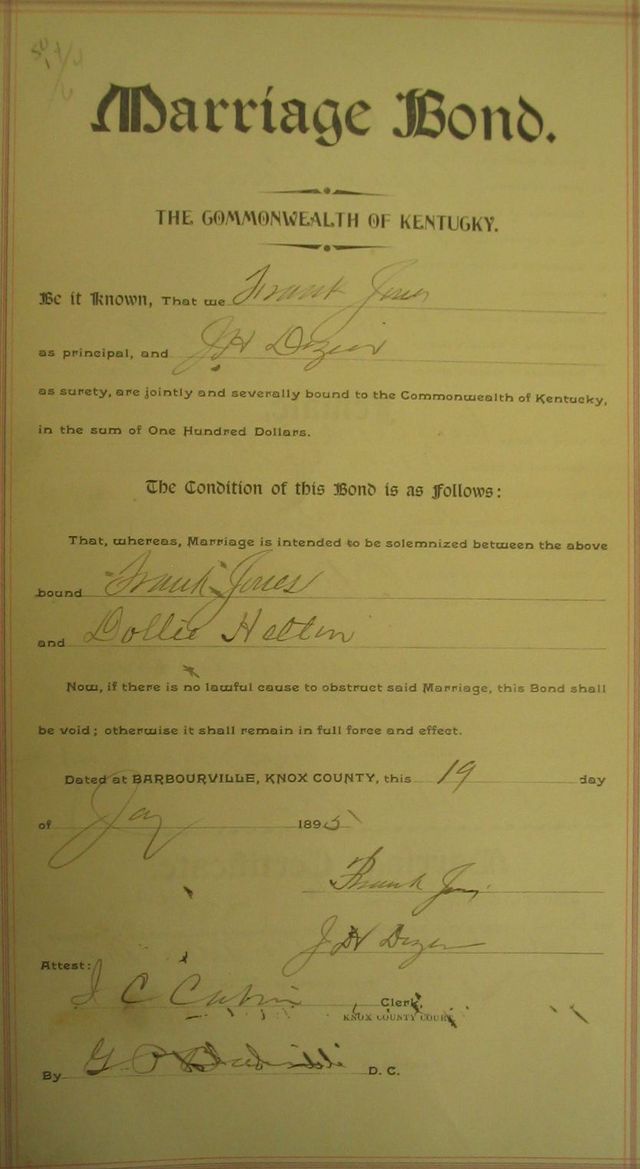 Marriage Bond.
THE COMMONWEALTH OF KENTUCKY.
Be it Known, That we Frank Jones
as principal, and J H Dozier
as surety, are jointly and severally bound to the Commonwealth of Kentucky,
in the sum of One Hundred Dollars.
The Condition of this Bond is as Follows:
That, whereas, Marriage is intended to be solemnized between the above
bound Frank Jones
and Dollie Helton
Now, if there is no lawful cause to obstruct said Marriage, this Bond shall
be void; otherwise it shall remain in full force and effect.
Dated at BARBOURVILLE, KNOX COUNTY, this 19 day
of 1895
Frank Jones
J H Dozier
Attest:
C Clerk,
KNOX COUNTY COURT.
By G D. C.